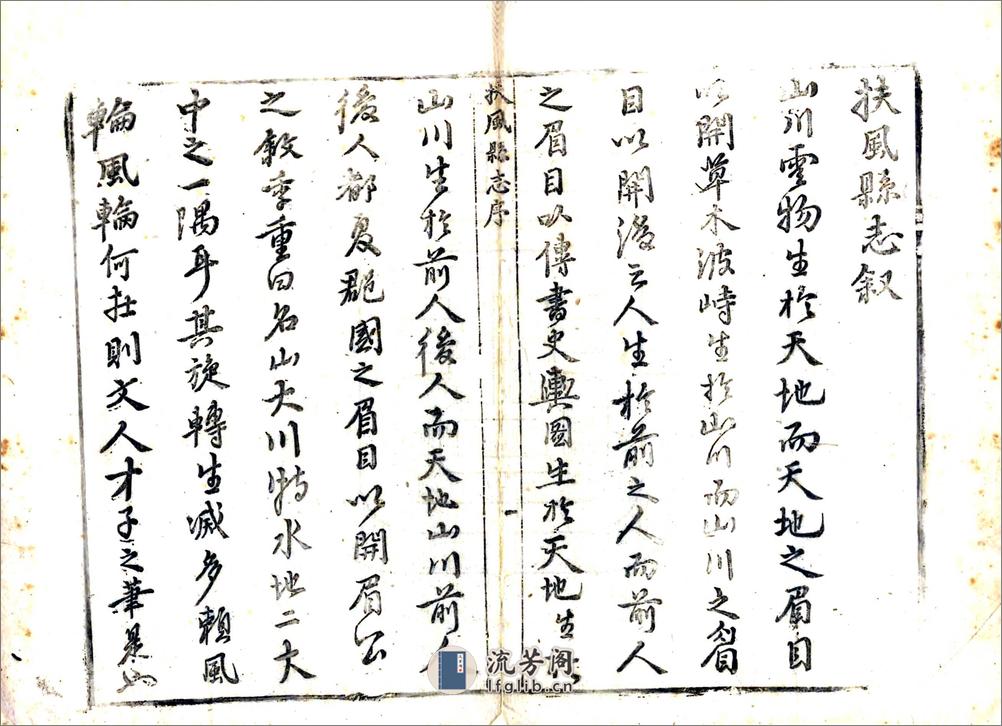 扶風縣志叙
山川雲物生於天地而天地之眉目
以開草木波峙生於山川而山川之眉
目以開後之人生於前之人而前人
之眉目以傳書史輿圖生於天地生
扶風縣志序
山川生於前人後人而天地山川前人
後人都夏郡國之眉目以開眉公
之敘季重曰名山大川特水地二大
中之一隅耳其旋轉生滅多賴風
輪風輪何在則文人才子之筆是也
流芳阁
lfglib.cn